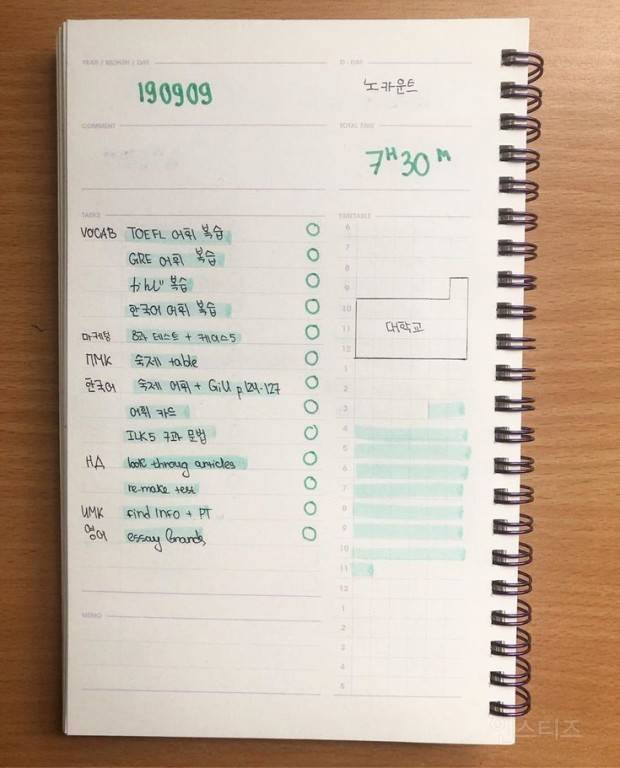 YEAR / MONTH / DAY
D-DAY
190909
노카운트
COMMENT
TOTAL TIME
7H 30M
TASKS
TIMETABLE
VOCAB TOEFL 어휘 복습
GRE 어휘 복습
かんじ 복습
한국어 어휘 복습
마케팅 8과 테스트 + 케이스5
ПМК 숙제 table
한국어 숙제 어휘 + GiU p124-127
어휘 카드
ILK5 7과 문법
НД look throug articles
re-make test
ИМК find info + PT
영어 essay brands
6
7
8
9
10
11 대학교
12
1
2
3
4
5
6
7
8
9
10
11
12
1
2
3
4
5
MEMO